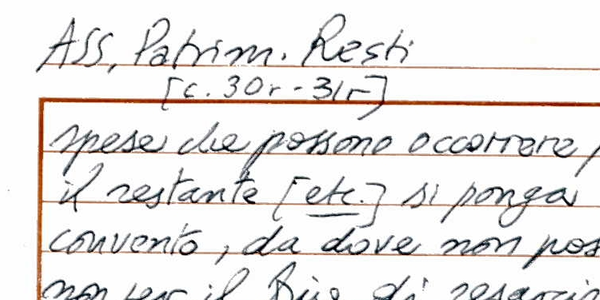 Ass. Patrim. Resti
[c. 30r - 31r]
spese che possono occorrere
il restante [etc.] si ponga
convento, da dove non pos
non per il di